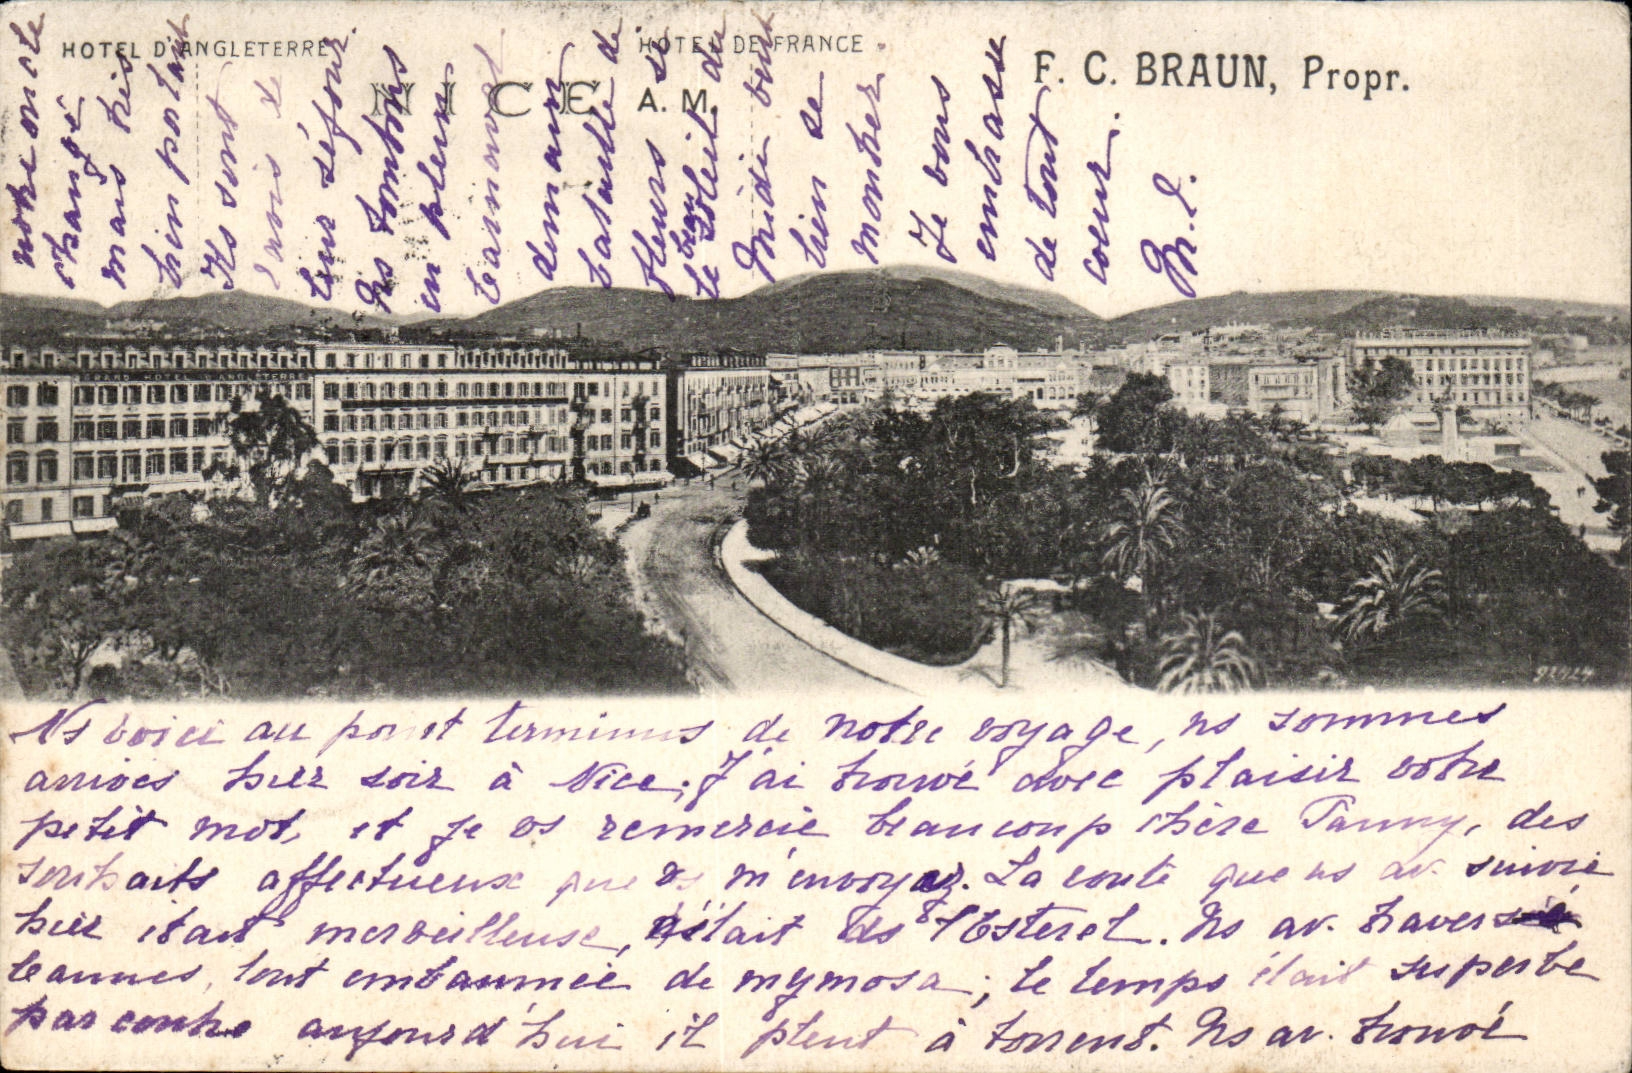 HOTEL D'ANGLETERRE
HOTEL DE FRANCE
NICE A. M.
F. C. BRAUN, Propr.
GRAND HOTEL D'ANGLETERRE
Ns voici au point terminus de notre voyage, ns sommes
arrivés hier soir à Nice; J'ai trouvé avec plaisir votre
petit mot, et je vs remercie beaucoup chère Fanny, des
souhaits affectueux que vs m'envoyez. La route que ns av. suivie
hier était merveilleuse, c'était ds l'Esterel. Ns av. traversé
Cannes, tout embaumée de mymosa; le temps était superbe
par contre aujourd'hui il pleut à torrent. Ns av. trouvé
notre oncle
changé
mais très
bien portant
Ils sont
ravis de
leur séjour.
Ns tombons
en plein
Carnaval
demain
bataille de
fleurs si
le beau soleil du
Midi veut
bien se
montrer
Je vous
embrasse
de tout
coeur.